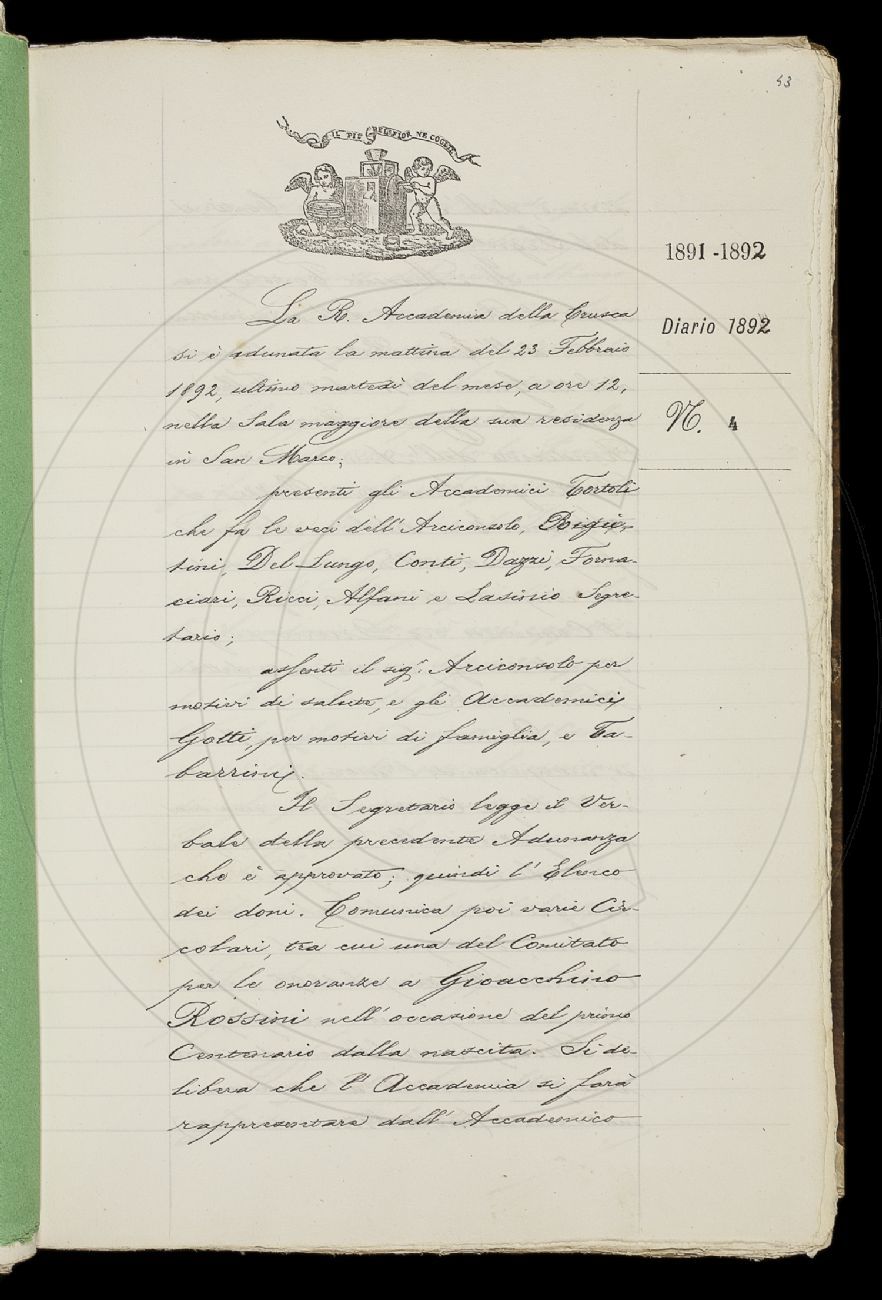 53
IL PIÙ BEL FIOR NE COGLIE
1891-1892
Diario 1892
N. 4
La R. Accademia della Crusca
si è adunata la mattina del 23 Febbraio
1892, ultimo martedì del mese, a ore 12,
nella Sala maggiore della sua residenza
in San Marco;
presenti gli Accademici Tortoli
che fa le veci dell'Arciconsolo, Rigu-
tini, Del Lungo, Conti, Dazzi, Forna-
ciari, Ricci, Alfani e Lasinio Segre-
tario;
assenti il sigr. Arciconsolo per
motivi di salute, e gli Accademici
Gotti, per motivi di famiglia, e Ta-
barrini.
Il Segretario legge il Ver-
bale della precedente Adunanza
che è approvato; quindi l'Elenco
dei doni. Comunica poi varie Cir-
colari, tra cui una del Comitato
per le onoranze a Gioacchino
Rossini nell'occasione del primo
Centenario dalla nascita. Si de-
libera che l'Accademia si farà
rappresentare dall'Accademico